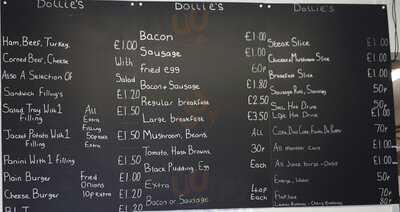 Dollie's
Dollie's
Dollie's
Ham, Beef, Turkey.
Corned Beef, Cheese
£1.00
With
Salad
Also A Selection Of
Sandwich Filling's
£1.20
Salad Tray With 1
Filling
All
Extra
Filling
50p
Extra
£1.50
Jacket Potato With 1
Filling
£1.50
Panini With 1 Filling
£1.50
Plain Burger
Fried
Onions
10p Extra
£1.00
Cheese Burger
£1.20
B.L.T
£1.20
Bacon
£1.00
Sausage
£1.00
Fried Egg
60p
Bacon + Sausage
£1.80
Regular breakfast
£2.50
Large breakfast
£3.50
Mushroom, Beans
Tomato, Hash Browns
Black Pudding, Egg
Extra
ALL
30p
Each
Bacon or Sausage
40p
Extra
Each
Steak Slice
£1.00
Chicken + Mushroom Slice
£1.00
Breakfast Slice
£1.00
Sausage Roll,
50p
Small Hot Drink
50p
Large Hot Drink
£1.00
70p
£1.00
£1.00
50p
70p
80p